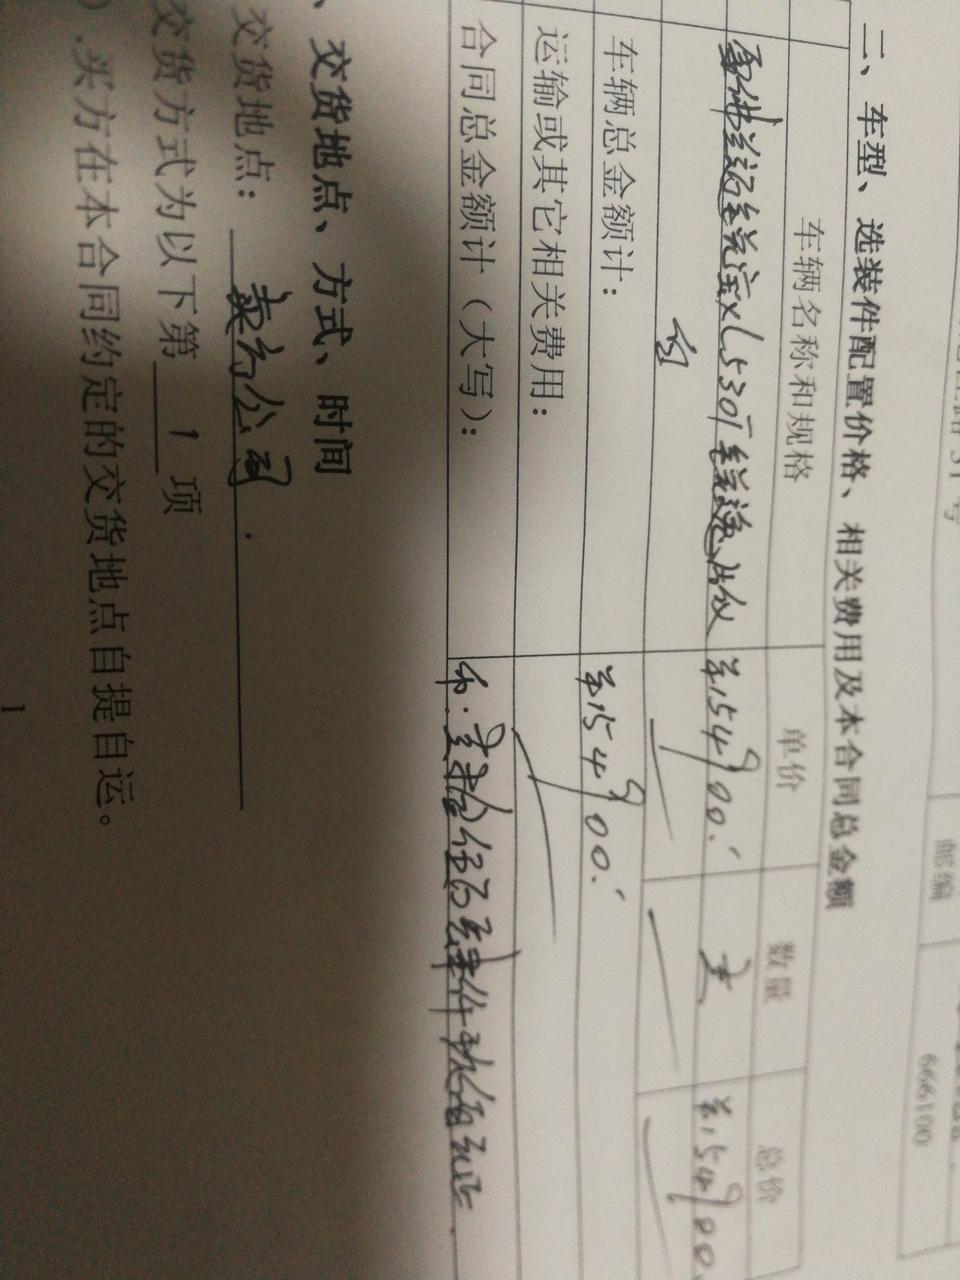 号
邮编
666100
二、车型、选装件配置价格、相关费用及本合同总金额
车辆名称和规格 单价 数量 总价
雪佛兰迈锐宝XL530T 锐逸版 ¥154900. 壹 ¥154900.
白
车辆总金额计： ¥154900.
运输或其它相关费用：
合同总金额计（大写）： 币：壹拾伍万肆仟玖佰元正.
、交货地点、方式、时间
交货地点： 卖方公司.
交货方式为以下第 1 项
）.买方在本合同约定的交货地点自提自运。
1